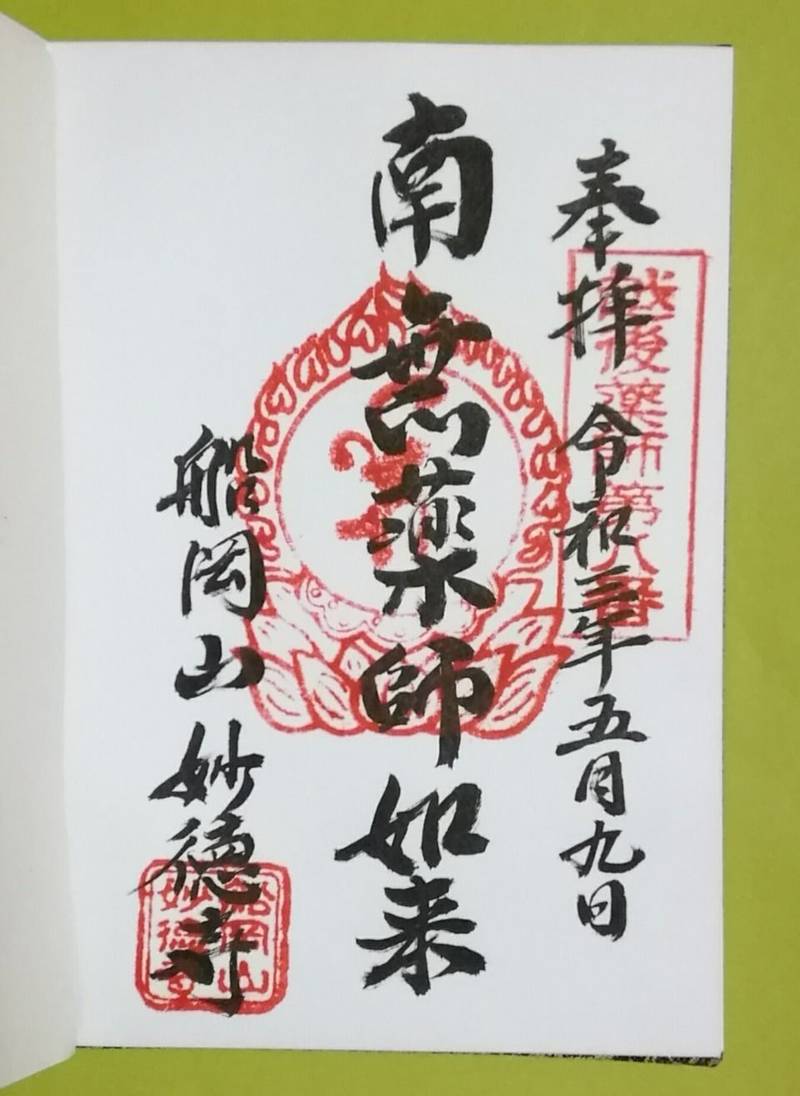 奉拝 令和三年五月九日
越後薬師第八番
南無薬師如来
船岡山妙徳寺
船岡山
妙徳寺